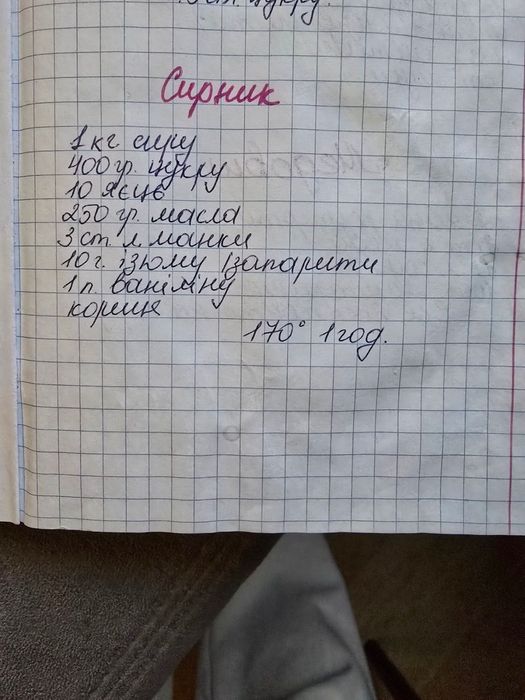 цукру.
Сирник
1 кг сиру
400 гр. цукру
10 яєць
250 гр. масла
3 ст. л. манки
10 г. ізюму запарити
1 п. ваніліну
кориця
170° 1 год.